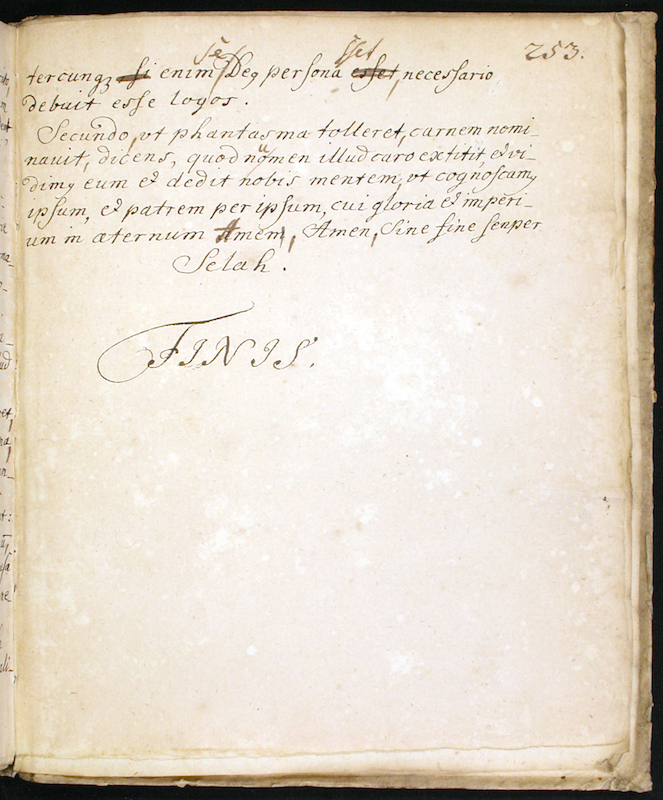 253.
se esset
tercunqz si enim Deq persona esset, necessario
debuit esse logos.
Secundo, vt phantasma tolleret, carnem nomi-
nauit, dicens, quod numen illud caro extitit, et vi-
dimq eum et dedit nobis mentem, vt cognoscamq
ipsum, et patrem per ipsum, cui gloria et imperi-
um in æternum Amen, Amen, Sine fine senper
Selah.
FINIS.